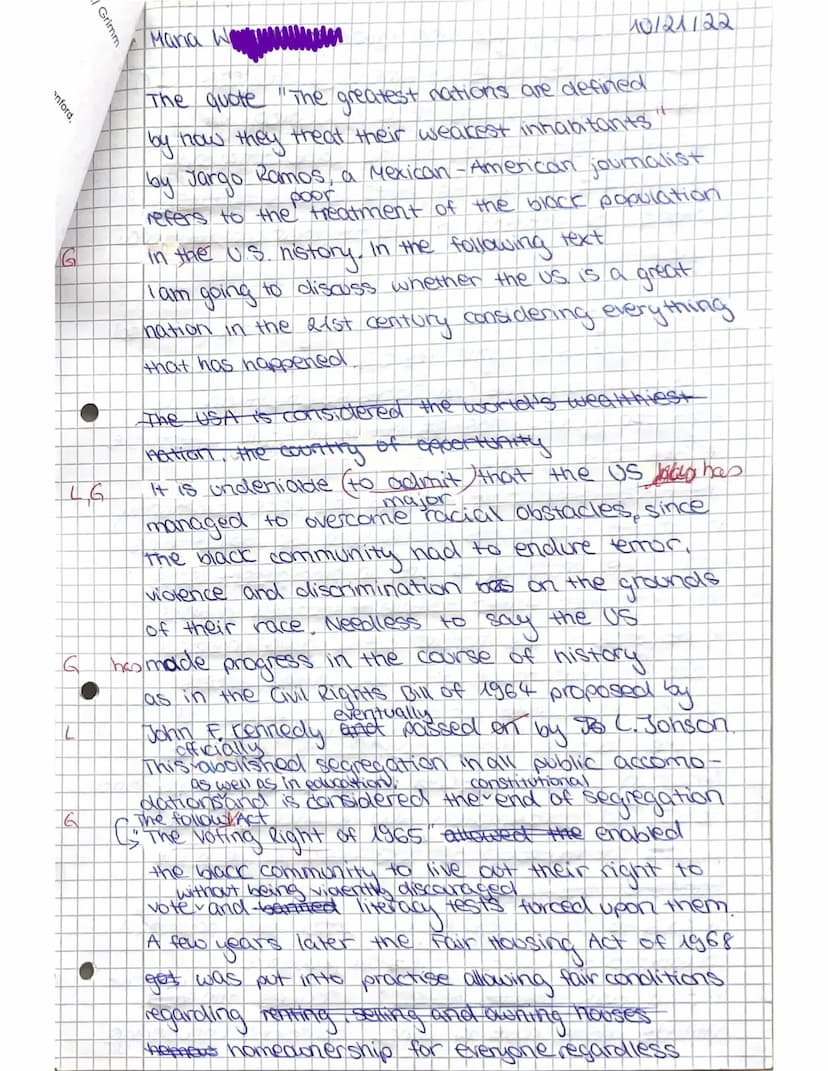 Grimm
nford.
Maria W
10/21/22
The quote "The greatest nations are defined
by how they treat their weakest inhabitants"
by Jargo Ramos, a Mexican-American journalist
poor
refers to the treatment of the black population
G
in the U.S. history. In the following text
I am going to discuss whether the US is a great
nation in the 21st century considering everything
that has happened.
The USA is considered the world's wealthiest
nation, the country of opportunity
L, G
It is undeniable (to admit) that the US has
major
managed to overcome racial obstacles, since
the black community had to endure terror,
violence and discrimination on the grounds
of their race. Needless to say the US
G has made progress in the course of history
as in the Civil Rights Bill of 1964 proposed by
eventually
L
John F. Kennedy and passed on by L. Jonson.
officially
This abolished segregation in all public accomo-
as well as in education, constitutional
dations and is considered the end of segregation
G
The follow Act
"The Voting Right of 1965" allowed the enabled
the black community to live out their right to
without being violently discouraged
vote and banned literacy tests forced upon them.
A few years later the Fair Housing Act of 1968
got was put into practise allowing fair conditions
regarding renting, selling and owning houses
homeownership for everyone regardless